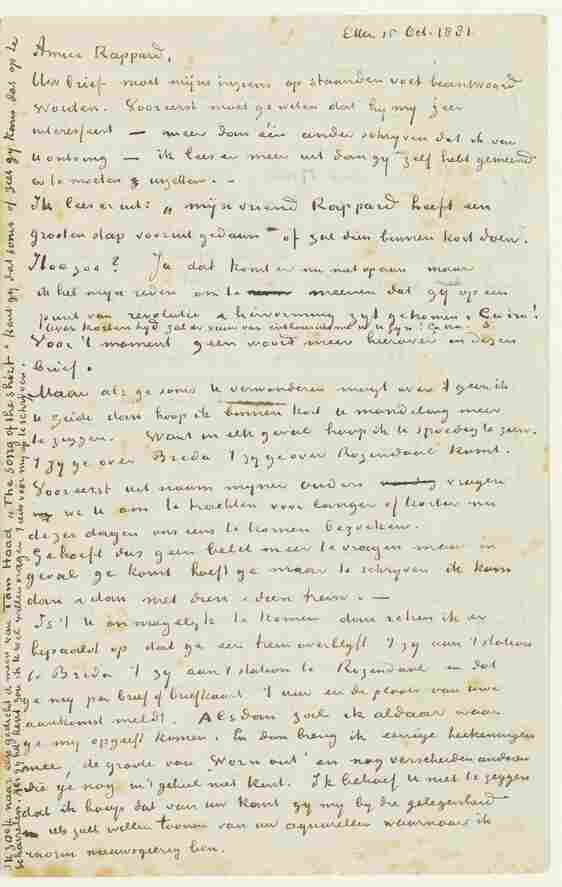 Etten 15 Oct. 1881
Amice Rappard,
Uw brief moet mijns inziens op staanden voet beantwoord
worden. Vooreerst moet ge weten dat hy my zeer
interesseert — meer dan één ander schryven dat ik van
U ontving — ik lees er meer uit dan gy zelf hebt gemeend
er te moeten instellen. —
Ik lees er uit: „mijn vriend Rappard heeft een
grooten stap vooruit gedaan — of zal dien binnen kort doen.
Hoezoo? Ja dat komt er nu niet op aan maar
ik heb mijn reden om te meenen dat gy op een
punt van revolutie & hervorming zyt gekomen. Ça ira!
Over korten tyd zal er vuur van enthousiasme in U zyn! Ça ira.
Voor 't moment geen woord meer hierover in dezen
brief.
Maar als ge soms U verwonderen mogt over 't geen ik
U zeide dan hoop ik binnen kort U mondeling meer
te zeggen. Want in elk geval hoop ik U spoedig te zien.
't zy ge over Breda 't zy ge over Rozendaal komt.
Vooreerst uit naam myner ouders vragen
we U om te trachten voor langer of korter nu
dezer dagen ons eens te komen bezoeken.
Ge hoeft dus geen belet meer te vragen maar in
geval ge komt hoeft ge maar te schryven ik kom
dan & dan met dien & dien trein. —
Is 't U onmogelyk te komen dan reken ik er
bepaald op dat ge een trein overblyft 't zy aan 't station
te Breda 't zy aan 't station te Rozendaal en dat
ge my per brief of briefkaart 't uur en de plaats van uwe
aankomst meldt. Alsdan zal ik aldaar waar
ge my opgeeft komen. En dan breng ik eenige teekeningen
mee, de groote van 'Worn out' en nog verscheiden anderen
die ge nog in 't geheel niet kent. Ik behoef U niet te zeggen
dat ik hoop dat van uw kant gy my by die gelegenheid
iets zult willen toonen van uw aquarellen waarnaar ik
enorm nieuwsgierig ben.
Ik zoek naar een gedicht ik meen van Tom Hood „The song of the shirt". Kent gy dat soms of ziet gy kans dat op te
scharrelen. Als gy het kent zou ik U wel willen vragen 't eens voor my op te schryven.